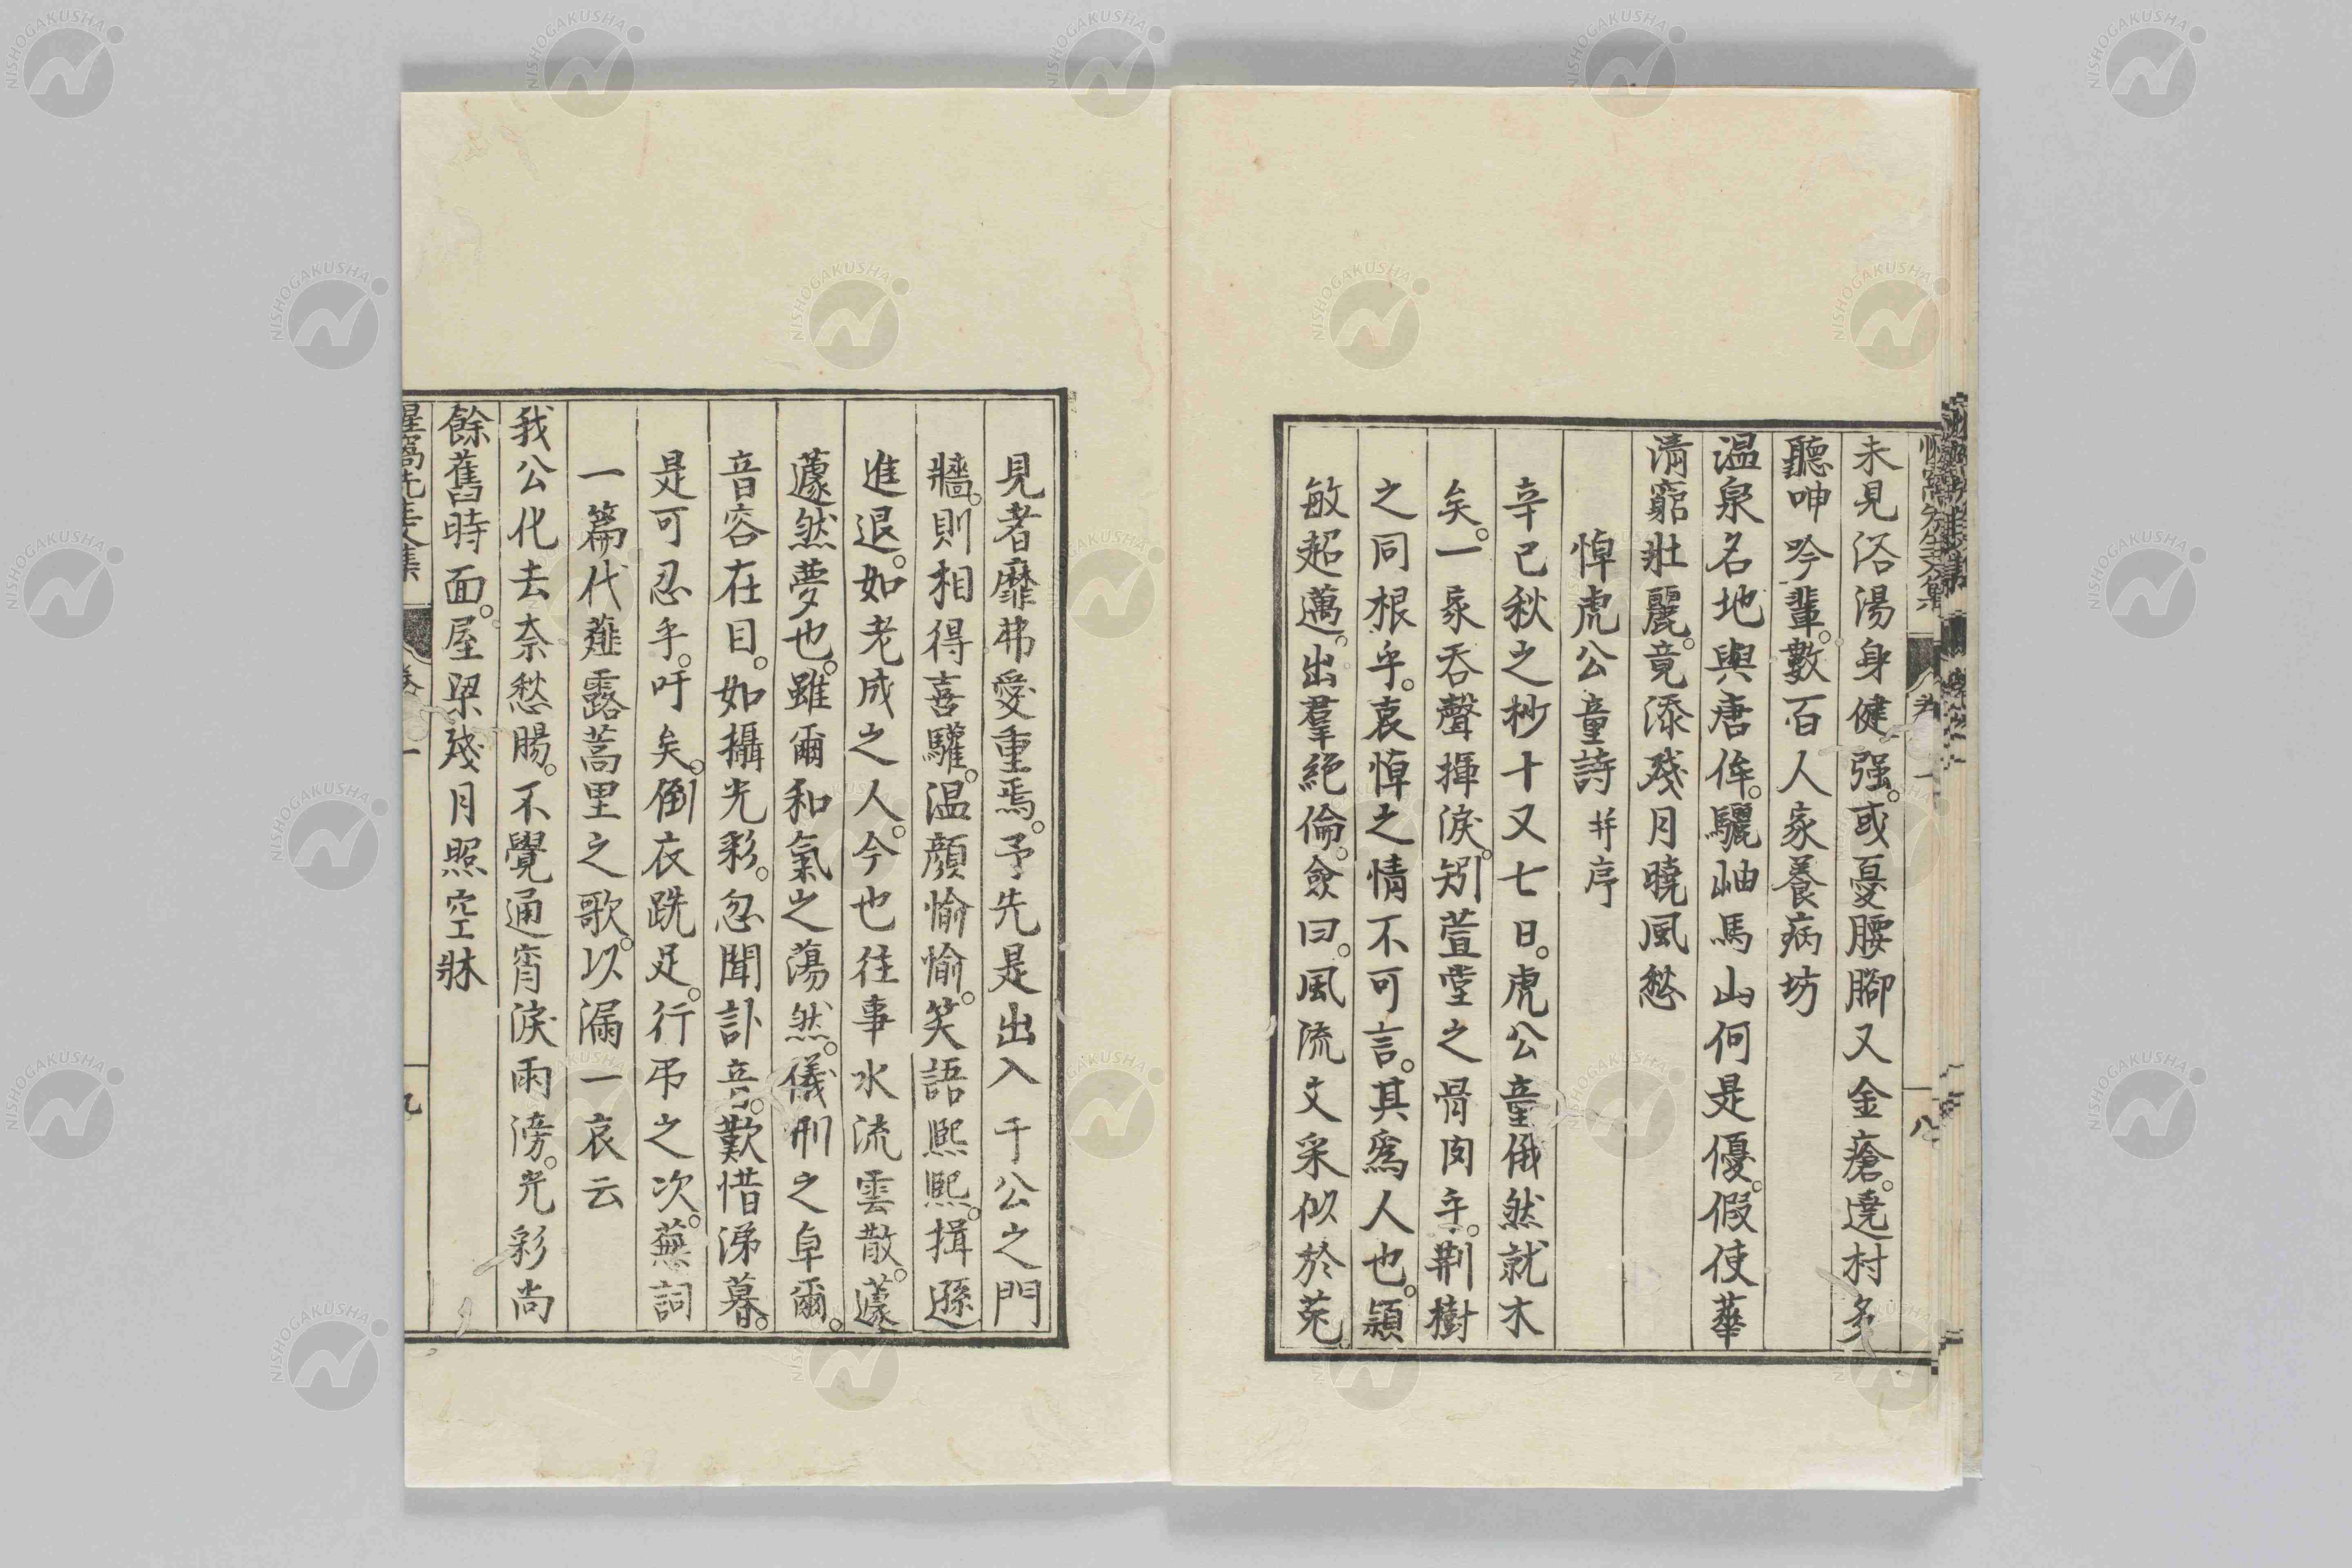 未見浴湯身健强。或憂腰腳又金瘡。遶村多
聽呻吟輩。數百人家養病坊
温泉名地與唐侔。驪岫馬山何是優。假使華
清窮壯麗。竟添殘月曉風愁
悼虎公童詩并序
辛巳秋之杪十又七日。虎公童俄然就木
矣。一家吞聲揮淚。矧萱堂之骨肉乎。荆樹
之同根乎。哀悼之情不可言。其爲人也。頴
敏超邁。出羣絶倫。僉曰。風流文采似於菟。
見者靡弗愛重焉。予先是出入于公之門
牆。則相得喜驩。温顔愉愉。笑語熙熙。揖遜
進退。如老成之人。今也往事水流雲散。蘧
蘧然夢也。雖爾和氣之蕩然。儀刑之卓爾。
音容在目。如攝光彩。忽聞訃音。歎惜涕暮。
是可忍乎。吁矣。倒衣跣足。行弔之次。蕪詞
一篇代薤露蒿里之歌。以漏一哀云
我公化去奈愁腸。不覺通宵淚雨滂。光彩尚
餘舊時面。屋梁殘月照空牀
惺窩先生文集 卷一 八
惺窩先生文集 卷一 九
NISHOGAKUSHA